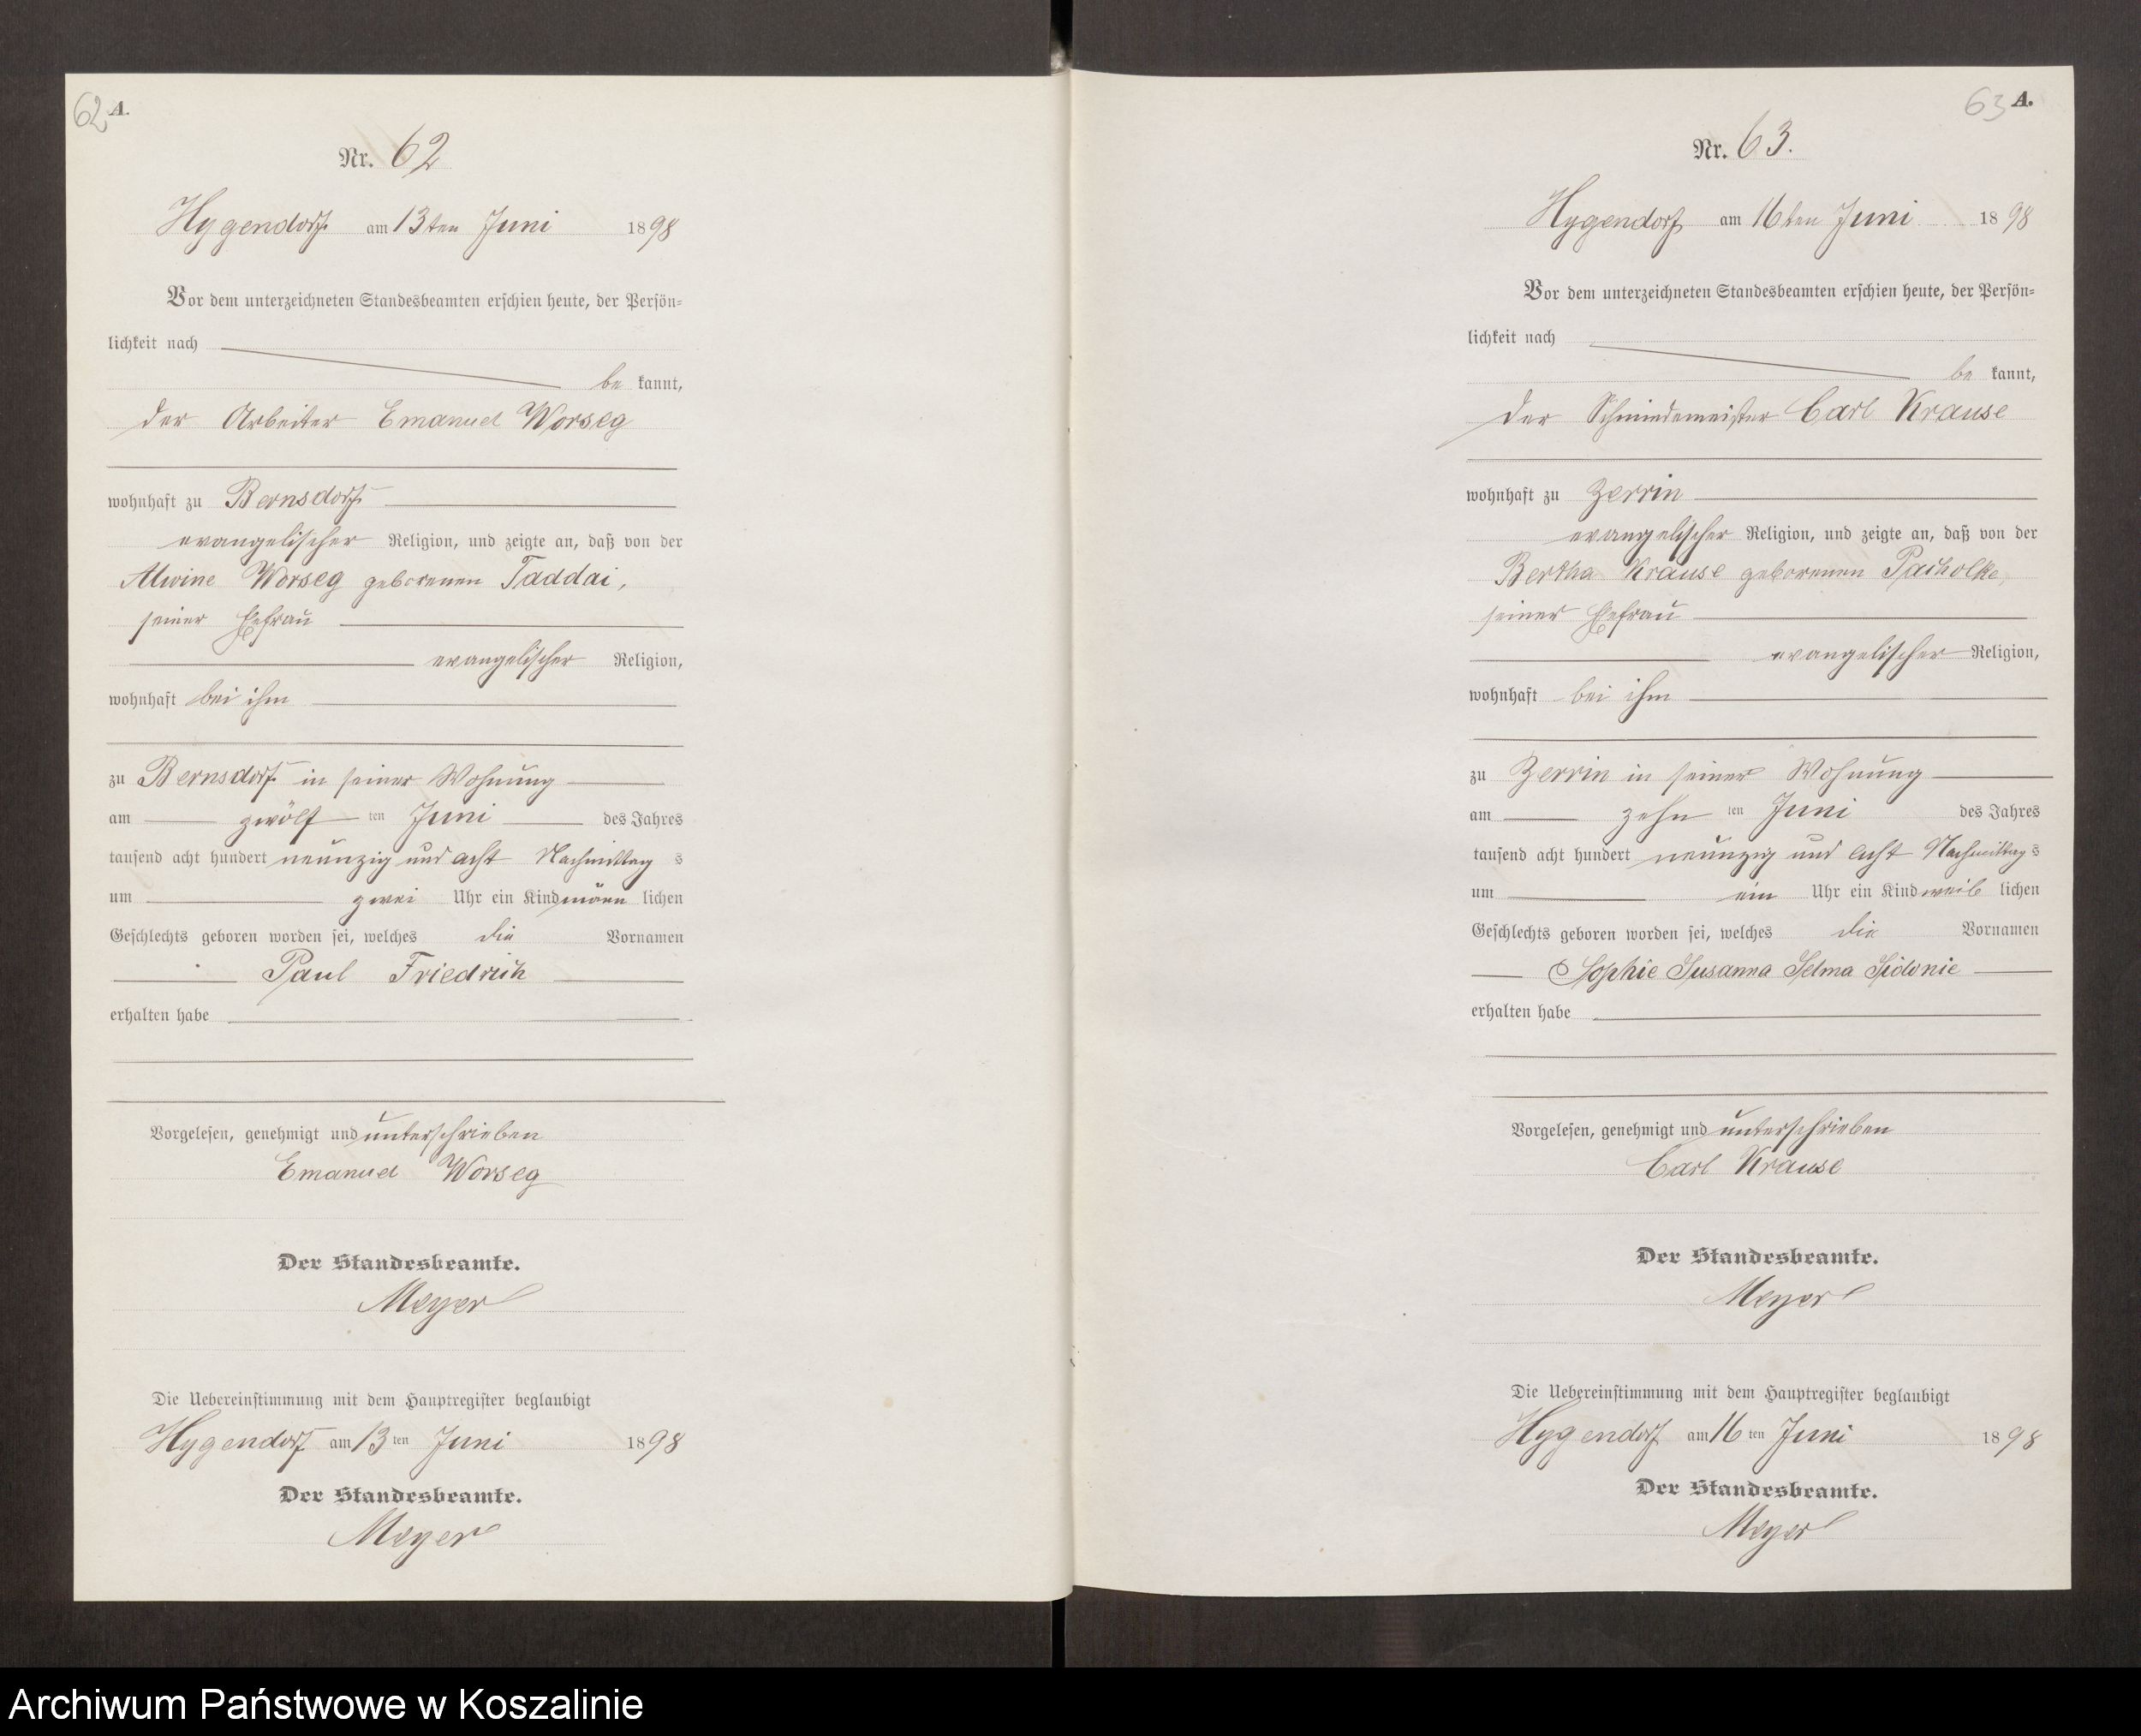 62 A.
Nr. 62
Hygendorf am 13ten Juni 1898
Vor dem unterzeichneten Standesbeamten erschien heute, der Persön-
lichkeit nach
be kannt,
der Arbeiter Emanuel Worseg
wohnhaft zu Bernsdorf
evangelischer Religion, und zeigte an, daß von der
Alwine Worseg geborenen Taddai,
seiner Ehefrau
evangelischer Religion,
wohnhaft bei ihm
zu Bernsdorf in seiner Wohnung
am zwölf ten Juni des Jahres
tausend acht hundert neunzig und acht Nachmittag s
um zwei Uhr ein Kind männ lichen
Geschlechts geboren worden sei, welches die Vornamen
Paul Friedrich
erhalten habe
Vorgelesen, genehmigt und unterschrieben
Emanuel Worseg
Der Standesbeamte.
Meyer
Die Uebereinstimmung mit dem Hauptregister beglaubigt
Hygendorf am 13 ten Juni 1898
Der Standesbeamte.
Meyer
63 A.
Nr. 63.
Hygendorf am 16ten Juni 1898
Vor dem unterzeichneten Standesbeamten erschien heute, der Persön-
lichkeit nach
be kannt,
der Schmiedemeister Carl Krause
wohnhaft zu Zerrin
evangelischer Religion, und zeigte an, daß von der
Bertha Krause geborenen Pacholke,
seiner Ehefrau
evangelischer Religion,
wohnhaft bei ihm
zu Zerrin in seiner Wohnung
am zehn ten Juni des Jahres
tausend acht hundert neunzig und acht Nachmittag s
um ein Uhr ein Kind weib lichen
Geschlechts geboren worden sei, welches die Vornamen
Sophie Susanna Selma Sidonie
erhalten habe
Vorgelesen, genehmigt und unterschrieben
Carl Krause
Der Standesbeamte.
Meyer
Die Uebereinstimmung mit dem Hauptregister beglaubigt
Hygendorf am 16 ten Juni 1898
Der Standesbeamte.
Meyer
Archiwum Państwowe w Koszalinie